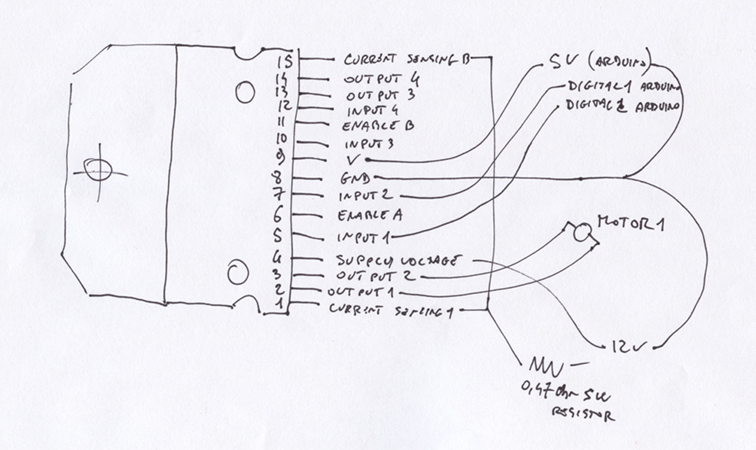 15 CURRENT SENSING B
14 OUTPUT 4
13 OUTPUT 3
12 INPUT 4
11 ENABLE B
10 INPUT 3
9 V
8 GND
7 INPUT 2
6 ENABLE A
5 INPUT 1
4 SUPPLY VOLTAGE
3 OUTPUT 2
2 OUTPUT 1
1 CURRENT SENSING 1
5V (ARDUINO)
DIGITAL 1 ARDUINO
DIGITAL 2 ARDUINO
MOTOR 1
12V
0,47 Ohm 5W
RESISTOR